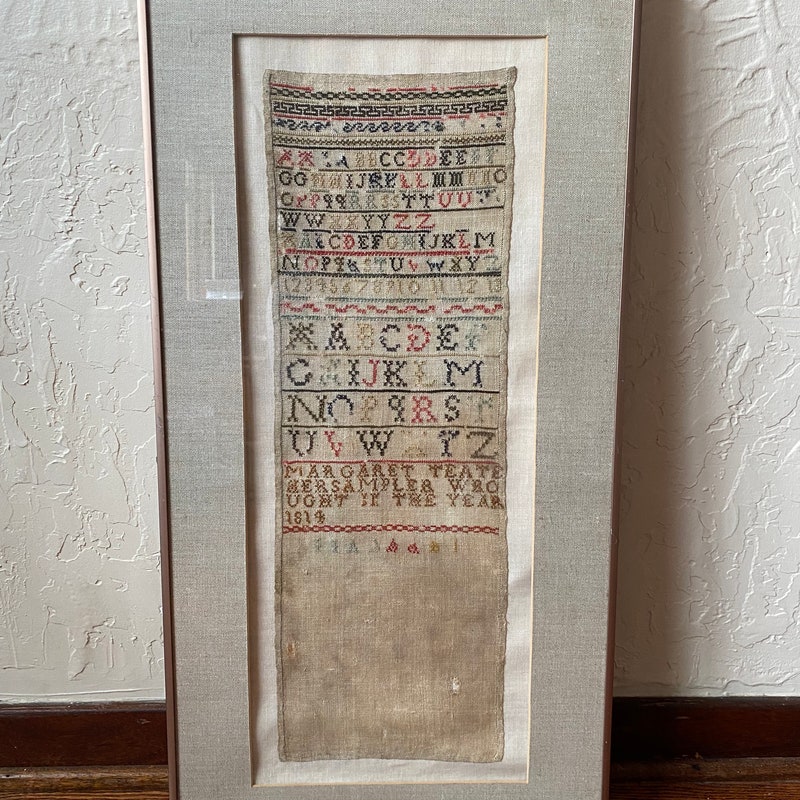 A A A A B B C C D D E E F F
G G H H I J K K L L M M N N O
O P P q q R R S S T T U U V
W W X X Y Y Z Z
A B C D E F G H I J K L M
N O P q R S T U V W X Y Z
1 2 3 4 5 6 7 8 9 10 11 12 13
A A B C D E F
G H I J K L M
N O P q R S T
U V W X Y Z
MARGARET TEATE
HER SAMPLER WRO
UGHT IN THE YEAR
1814